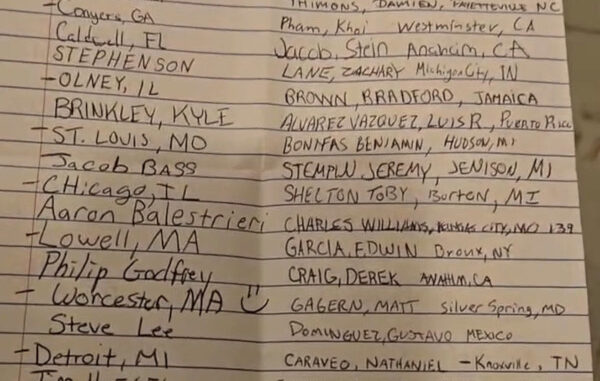 - Conyers, GA
Caldwell, FL
STEPHENSON
- OLNEY, IL
BRINKLEY, KYLE
- ST. LOUIS, MO
Jacob BASS
- CHicago, IL
Aaron Balestrieri
- Lowell, MA
Philip Godfrey
- Worcester, MA
Steve Lee
- Detroit, MI
THIMONS, DAMIEN, FAYETTEVILLE NC
Pham, Khoi Westminster, CA
Jacob, Stein Anaheim, CA
LANE, ZACHARY Michigan City, IN
BROWN, BRADFORD, JAMAICA
ALVAREZ VAZQUEZ, LUIS R, Puerto Rico
BONIFAS BENJAMIN, HUDSON, MI
STEMPLN JEREMY, JENISON, MI
SHELTON TOBY, Burton, MI
CHARLES WILLIAMS, KANSAS CITY, MO 139
GARCIA, EDWIN Bronx, NY
CRAIG, DEREK ANAHIM, CA
GAGERN, MATT Silver Spring, MD
DOMINGUEZ, GUSTAVO MEXICO
CARAVEO, NATHANIEL - Knoxville, TN